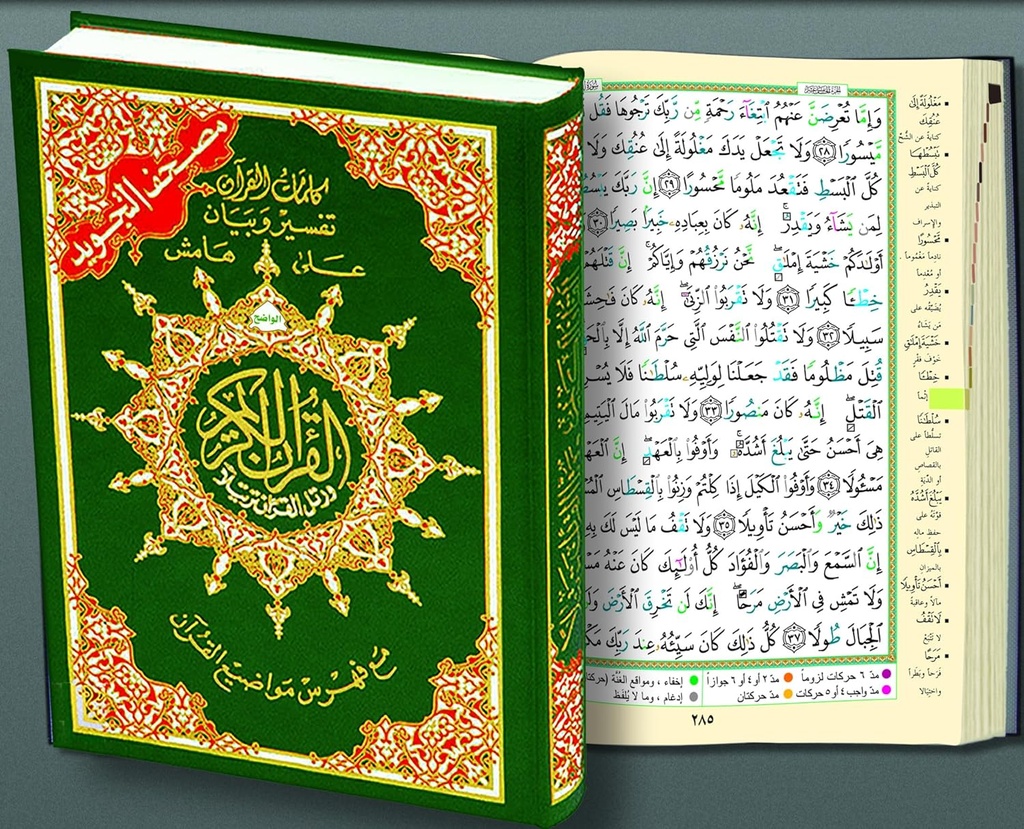 مصحف التجويد
كلمات القرآن
تفسير وبيان
على هامش
الواضح
القرآن الكريم
ورتل القرآن ترتيلا
مع فهرس مواضيع القرآن
وَإِمَّا تُعْرِضَنَّ عَنْهُمُ ٱبْتِغَآءَ رَحْمَةٍ مِّن رَّبِّكَ تَرْجُوهَا فَقُل
مَّيْسُورًا ٢٨ وَلَا تَجْعَلْ يَدَكَ مَغْلُولَةً إِلَىٰ عُنُقِكَ وَلَا
كُلَّ ٱلْبَسْطِ فَتَقْعُدَ مَلُومًا مَّحْسُورًا ٢٩ إِنَّ رَبَّكَ يَبْسُطُ
لِمَن يَشَآءُ وَيَقْدِرُ إِنَّهُۥ كَانَ بِعِبَادِهِۦ خَبِيرًۢا بَصِيرًا ٣٠
أَوْلَٰدَكُمْ خَشْيَةَ إِمْلَٰقٍ نَّحْنُ نَرْزُقُهُمْ وَإِيَّاكُمْ إِنَّ قَتْلَهُمْ
خِطْـًٔا كَبِيرًا ٣١ وَلَا تَقْرَبُوا۟ ٱلزِّنَىٰٓ إِنَّهُۥ كَانَ فَٰحِشَةً
سَبِيلًا ٣٢ وَلَا تَقْتُلُوا۟ ٱلنَّفْسَ ٱلَّتِى حَرَّمَ ٱللَّهُ إِلَّا بِٱلْحَقِّ
قُتِلَ مَظْلُومًا فَقَدْ جَعَلْنَا لِوَلِيِّهِۦ سُلْطَٰنًا فَلَا يُسْرِف
ٱلْقَتْلِ إِنَّهُۥ كَانَ مَنصُورًا ٣٣ وَلَا تَقْرَبُوا۟ مَالَ ٱلْيَتِيمِ
هِىَ أَحْسَنُ حَتَّىٰ يَبْلُغَ أَشُدَّهُۥ وَأَوْفُوا۟ بِٱلْعَهْدِ إِنَّ ٱلْعَهْدَ
مَسْـُٔولًا ٣٤ وَأَوْفُوا۟ ٱلْكَيْلَ إِذَا كِلْتُمْ وَزِنُوا۟ بِٱلْقِسْطَاسِ
ذَٰلِكَ خَيْرٌ وَأَحْسَنُ تَأْوِيلًا ٣٥ وَلَا تَقْفُ مَا لَيْسَ لَكَ بِهِۦ
إِنَّ ٱلسَّمْعَ وَٱلْبَصَرَ وَٱلْفُؤَادَ كُلُّ أُو۟لَٰٓئِكَ كَانَ عَنْهُ
وَلَا تَمْشِ فِى ٱلْأَرْضِ مَرَحًا إِنَّكَ لَن تَخْرِقَ ٱلْأَرْضَ وَلَن
ٱلْجِبَالَ طُولًا ٣٧ كُلُّ ذَٰلِكَ كَانَ سَيِّئُهُۥ عِندَ رَبِّكَ
مدّ ٦ حركات لزوماً مدّ ٢ أو ٤ أو ٦ جوازاً إخفاء ، ومواقع الغُنَّة
مدّ واجب ٤ أو ٥ حركات مدّ حركتان إدغام ، وما لا يُلفَظ
٢٨٥
مَغْلُولَةً إِلَىٰ
عُنُقِكَ
كناية عن الشُّح
تَبْسُطْهَا
كُلَّ ٱلْبَسْطِ
كناية عن
التبذير
والإسراف
مَّحْسُورًا
نادماً مغموماً
أو مُعْدِماً
يَقْدِرُ
يُضَيِّقُه على
مَن يَشاءُ
خَشْيَةَ إِمْلَٰقٍ
خَوْفَ فَقْرٍ
خِطْـًٔا
إثماً
سُلْطَٰنًا
تسلُّطاً على
القاتل
بالقصاص
أو الدِّيَة
يَبْلُغَ أَشُدَّهُۥ
قوّتَه على
حفظ ماله
بِٱلْقِسْطَاسِ
بالميزان
أَحْسَنُ تَأْوِيلًا
مآلاً وعاقبةً
لَا تَقْفُ
لا تَتَّبِعْ
مَرَحًا
فَرَحاً وبَطَراً
واختيالاً